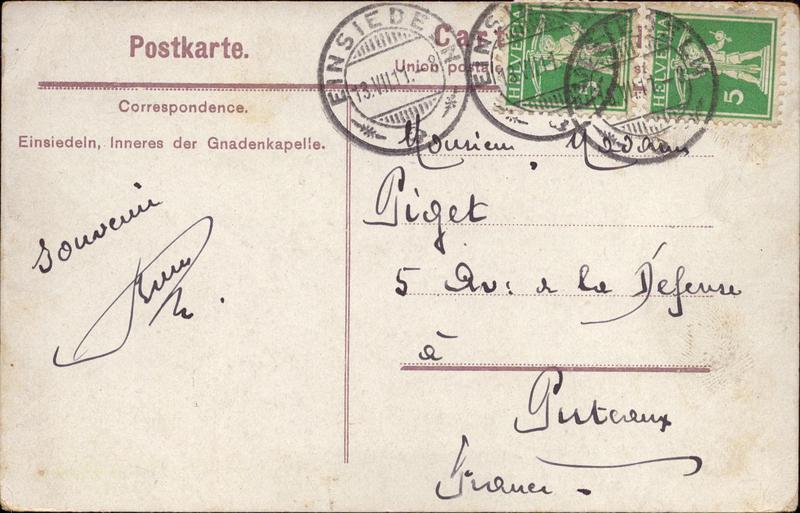 Postkarte.
Correspondence.
Einsiedeln, Inneres der Gnadenkapelle.
Union postale
EINSIEDELN
HELVETIA 5
HELVETIA 5
souvenir
Monsieur, Madame
Piget
5 Av: de la Défense
à
Puteaux
France.